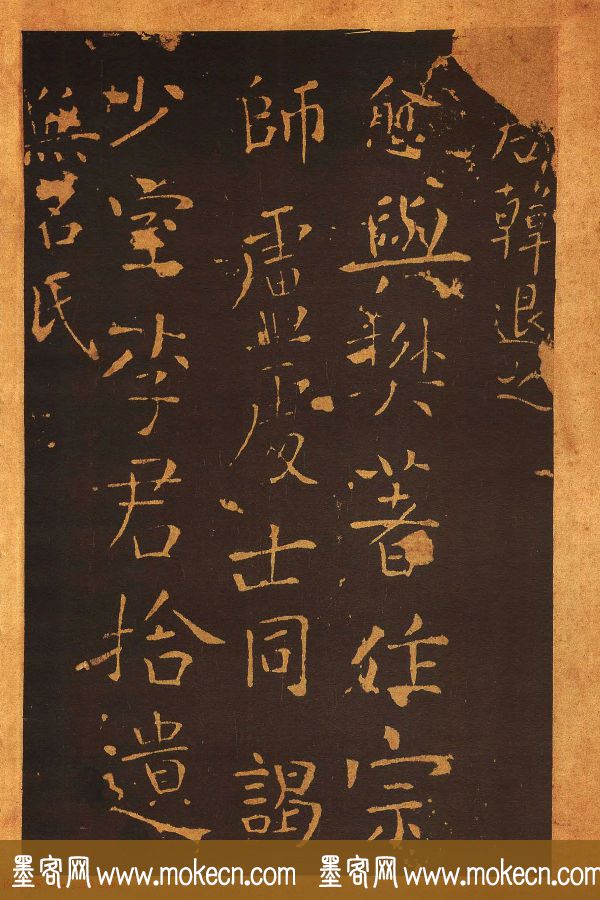 右韓退之
愈與樊著作宗
師盧處士同謁
少室李君拾遺
無名氏
墨客网 www.mokecn.com 墨客网 www.mokecn.com